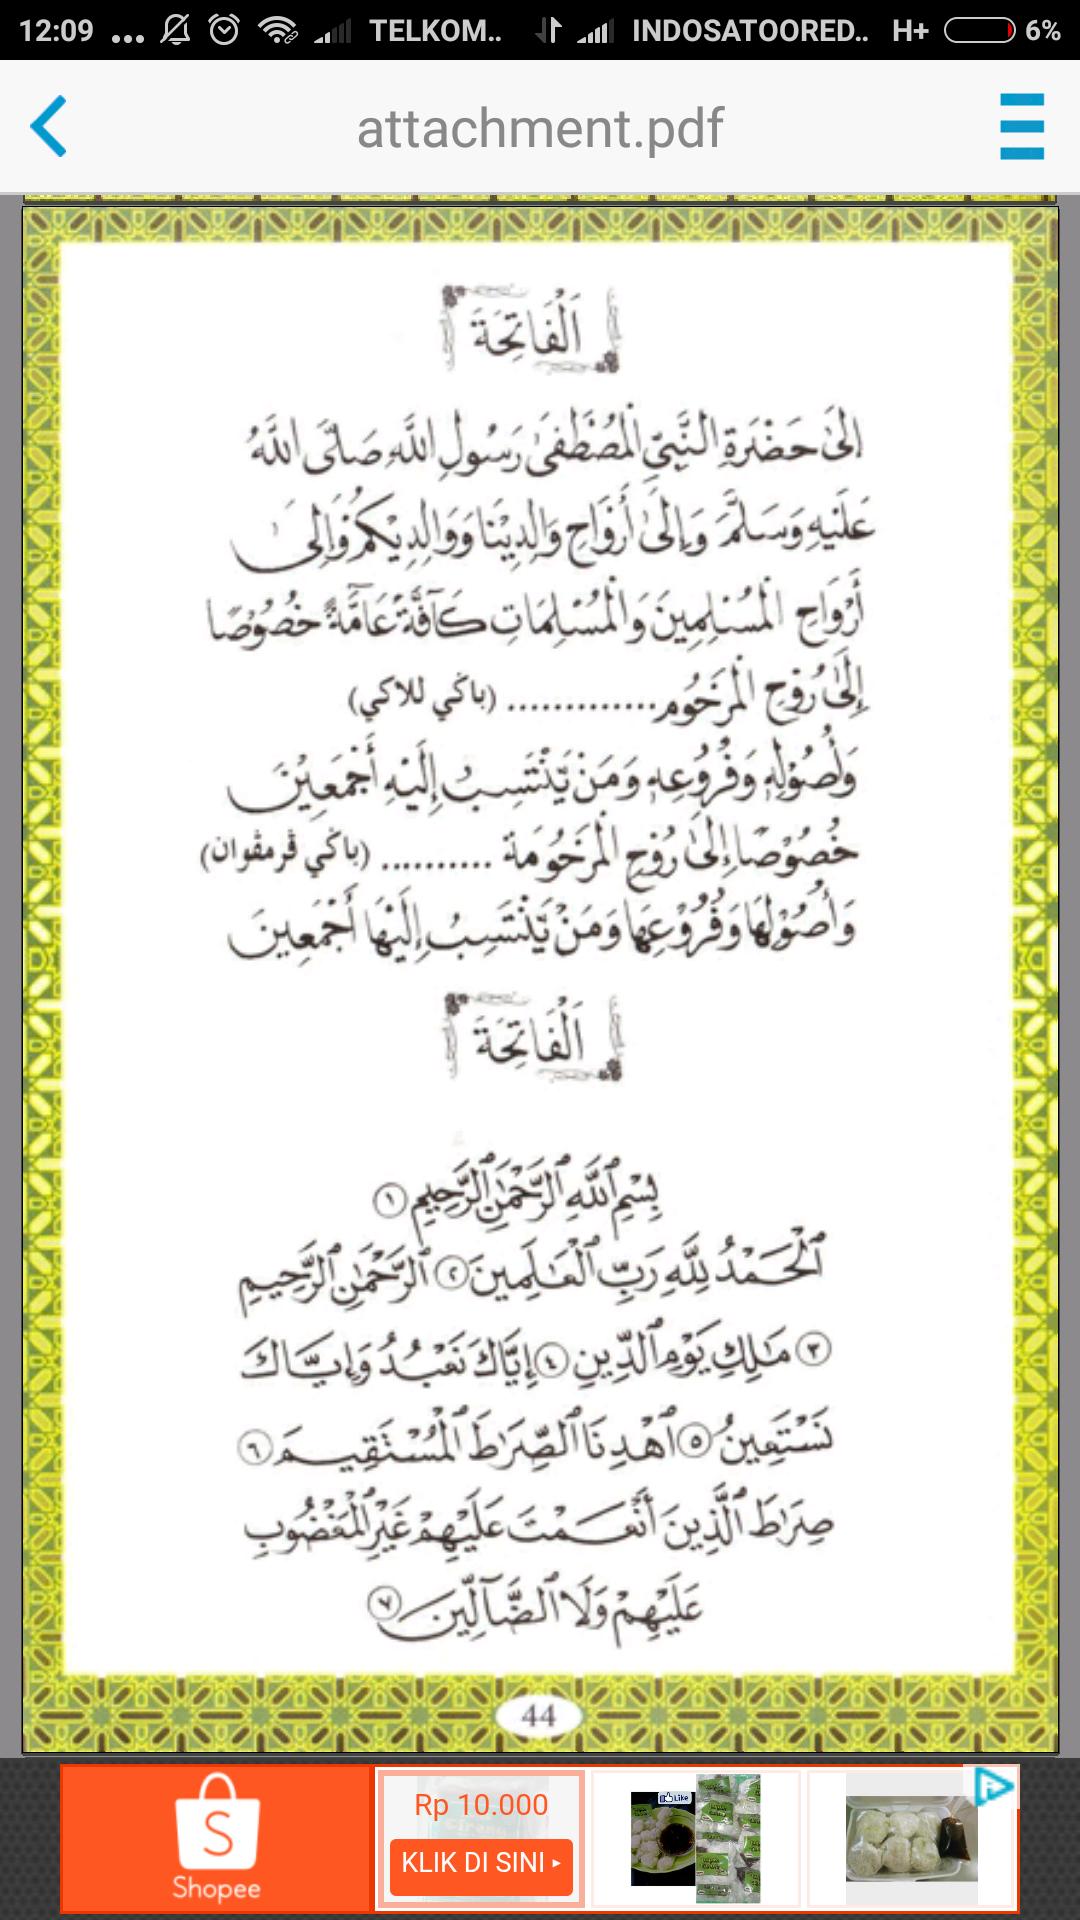 12:09 ... TELKOM.. INDOSATOORED.. H+ 6%
attachment.pdf
اَلْفَاتِحَةَ
اِلَىٰ حَضْرَةِ النَّبِيِّ الْمُصْطَفَىٰ رَسُولِ اللَّهِ صَلَّى اللَّهُ
عَلَيْهِ وَسَلَّمَ وَإِلَىٰ أَرْوَاحِ وَالِدِيْنَا وَوَالِدِيْكُمْ وَإِلَىٰ
أَرْوَاحِ الْمُسْلِمِينَ وَالْمُسْلِمَاتِ كَآفَّةً عَآمَّةً خُصُوْصًا
إِلَىٰ رُوْحِ الْمَرْحُوْمِ............. (باݢي للاکي)
وَأُصُوْلِهِ وَفُرُوْعِهِ وَمَنْ يَنْتَسِبُ إِلَيْهِ أَجْمَعِيْنَ
خُصُوْصًا إِلَىٰ رُوْحِ الْمَرْحُوْمَةِ .......... (باݢي ڤرمڤوان)
وَأُصُوْلِهَا وَفُرُوْعِهَا وَمَنْ يَنْتَسِبُ إِلَيْهَا أَجْمَعِينَ
اَلْفَاتِحَةَ
بِسْمِ ٱللَّهِ ٱلرَّحْمَٰنِ ٱلرَّحِيمِ ١
ٱلْحَمْدُ لِلَّهِ رَبِّ ٱلْعَٰلَمِينَ ٢ ٱلرَّحْمَٰنِ ٱلرَّحِيمِ
٣ مَٰلِكِ يَوْمِ ٱلدِّينِ ٤ إِيَّاكَ نَعْبُدُ وَإِيَّاكَ
نَسْتَعِينُ ٥ ٱهْدِنَا ٱلصِّرَٰطَ ٱلْمُسْتَقِيمَ ٦
صِرَٰطَ ٱلَّذِينَ أَنْعَمْتَ عَلَيْهِمْ غَيْرِ ٱلْمَغْضُوبِ
عَلَيْهِمْ وَلَا ٱلضَّآلِّينَ ٧
44
Shopee
Rp 10.000
KLIK DI SINI ▸
Like